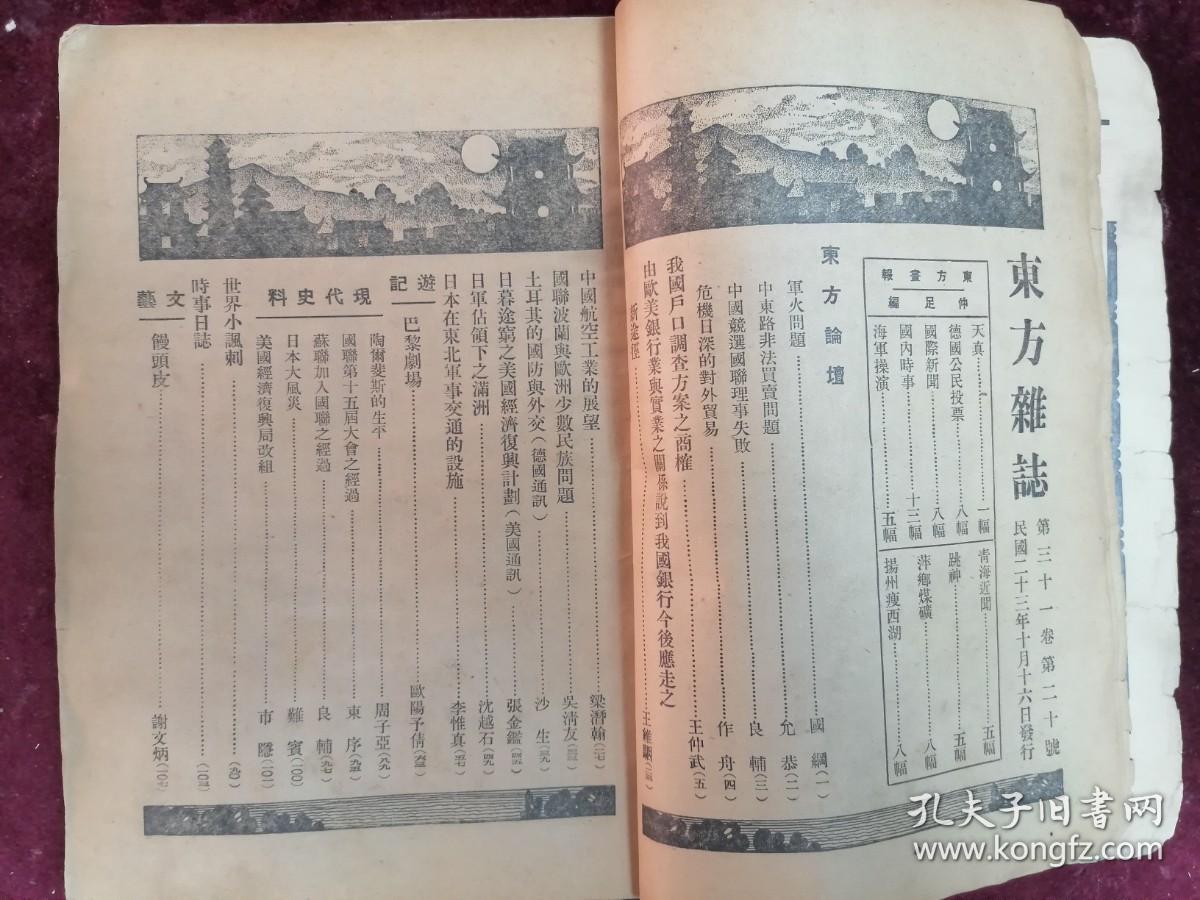 東方雜誌
第三十一卷第二十號
民國二十三年十月十六日發行
東方畫報
仲足編
天真……一幅
德國公民投票……八幅
國際新聞……八幅
國內時事……十三幅
海軍操演……五幅
青海近聞……五幅
跳神……五幅
萍鄉煤礦……八幅
揚州瘦西湖……八幅
東方論壇
軍火問題……國綱(一)
中東路非法買賣問題……允恭(二)
中國競選國聯理事失敗……良輔(三)
危機日深的對外貿易……作舟(四)
我國戶口調查方案之商榷……王仲武(五)
由歐美銀行業與實業之關係說到我國銀行今後應走之
新途徑……王維駰
中國航空工業的展望……梁潛翰(二七)
國聯波蘭與歐洲少數民族問題……吳清友
土耳其的國防與外交(德國通訊)……沙生(三九)
日暮途窮之美國經濟復興計劃(美國通訊)……張金鑑(四五)
日軍佔領下之滿洲……沈越石(四九)
日本在東北軍事交通的設施……李惟真(五七)
遊記
巴黎劇場……歐陽予倩
現代史料
陶爾斐斯的生平……周子亞(八九)
國聯第十五屆大會之經過……東序(九五)
蘇聯加入國聯之經過……良輔(九七)
日本大風災……難賓(一〇〇)
美國經濟復興局改組……市隱(一〇一)
世界小諷刺……(九〇)
時事日誌……(一〇三)
文藝
饅頭皮……謝文炳(一〇七)
孔夫子旧书网
www.kongfz.com